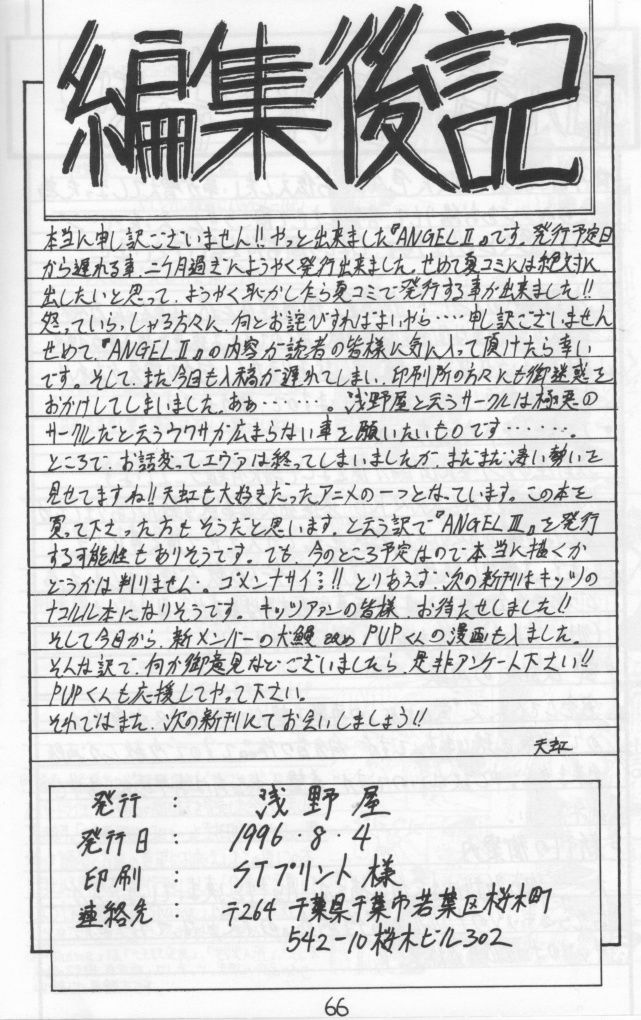 編集後記
本当に申し訳ございません!!やっと出来ました『ANGELⅡ』です。発行予定日
から遅れる事、二ケ月過ぎにようやく発行出来ました。せめて夏コミには絶対に
出したいと思って、ようやく恥かしながら夏コミで発行する事が出来ました!!
怒っていらっしゃる方々に、何とお詫びすればよいやら……申し訳ございません
せめて、『ANGELⅡ』の内容が読者の皆様に気に入って頂けたら幸い
です。そして、また今回も入稿が遅れてしまい、印刷所の方々にも御迷惑を
おかけしてしまいました。ああ………。浅野屋と云うサークルは極悪の
サークルだと云うウワサが広まらない事を願いたいものです………。
ところで、お話変ってエヴァは終ってしまいましたが、まだまだ凄い勢いを
見せてますね!!天虹も大好きだったアニメの一つとなっています。この本を
買って下さった方もそうだと思います。と云う訳で『ANGELⅢ』を発行
する可能性もありそうです。でも、今のところ予定なので本当に描くか
どうかは判りません。ゴメンナサイ!!とりあえず、次の新刊はキッツの
ナコルル本になりそうです。キッツファンの皆様、お待たせしました!!
そして今回から、新メンバーの犬鰻改めPUPくんの漫画も入ました。
そんな訳で、何か御意見などございましたら、是非アンケート下さい!!
PUPくんも応援してやって下さい。
それではまた、次の新刊にてお会いしましょう!!
天虹
発行 : 浅野屋
発行日 : 1996・8・4
印刷 : STプリント様
連絡先 : 〒264 千葉県千葉市若葉区桜木町
542-10桜木ビル302
66